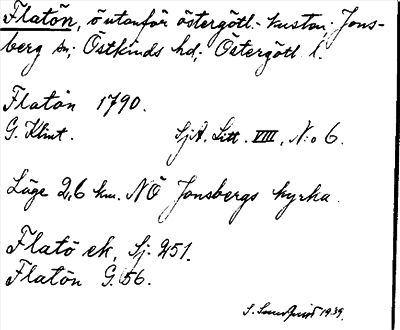 Flatön, ö utanför östergötl.-kusten; Jons-
berg sn; Östkinds hd; Östergötl l.
Flatön 1790.
G. Klint. SjA. Litt. VIII, N:o 6.
Läge 2,6 km. NÖ Jonsbergs kyrka.
Flatö ek. Sj. 251.
Flatön G. 56.
S. Sundqvist 1939.